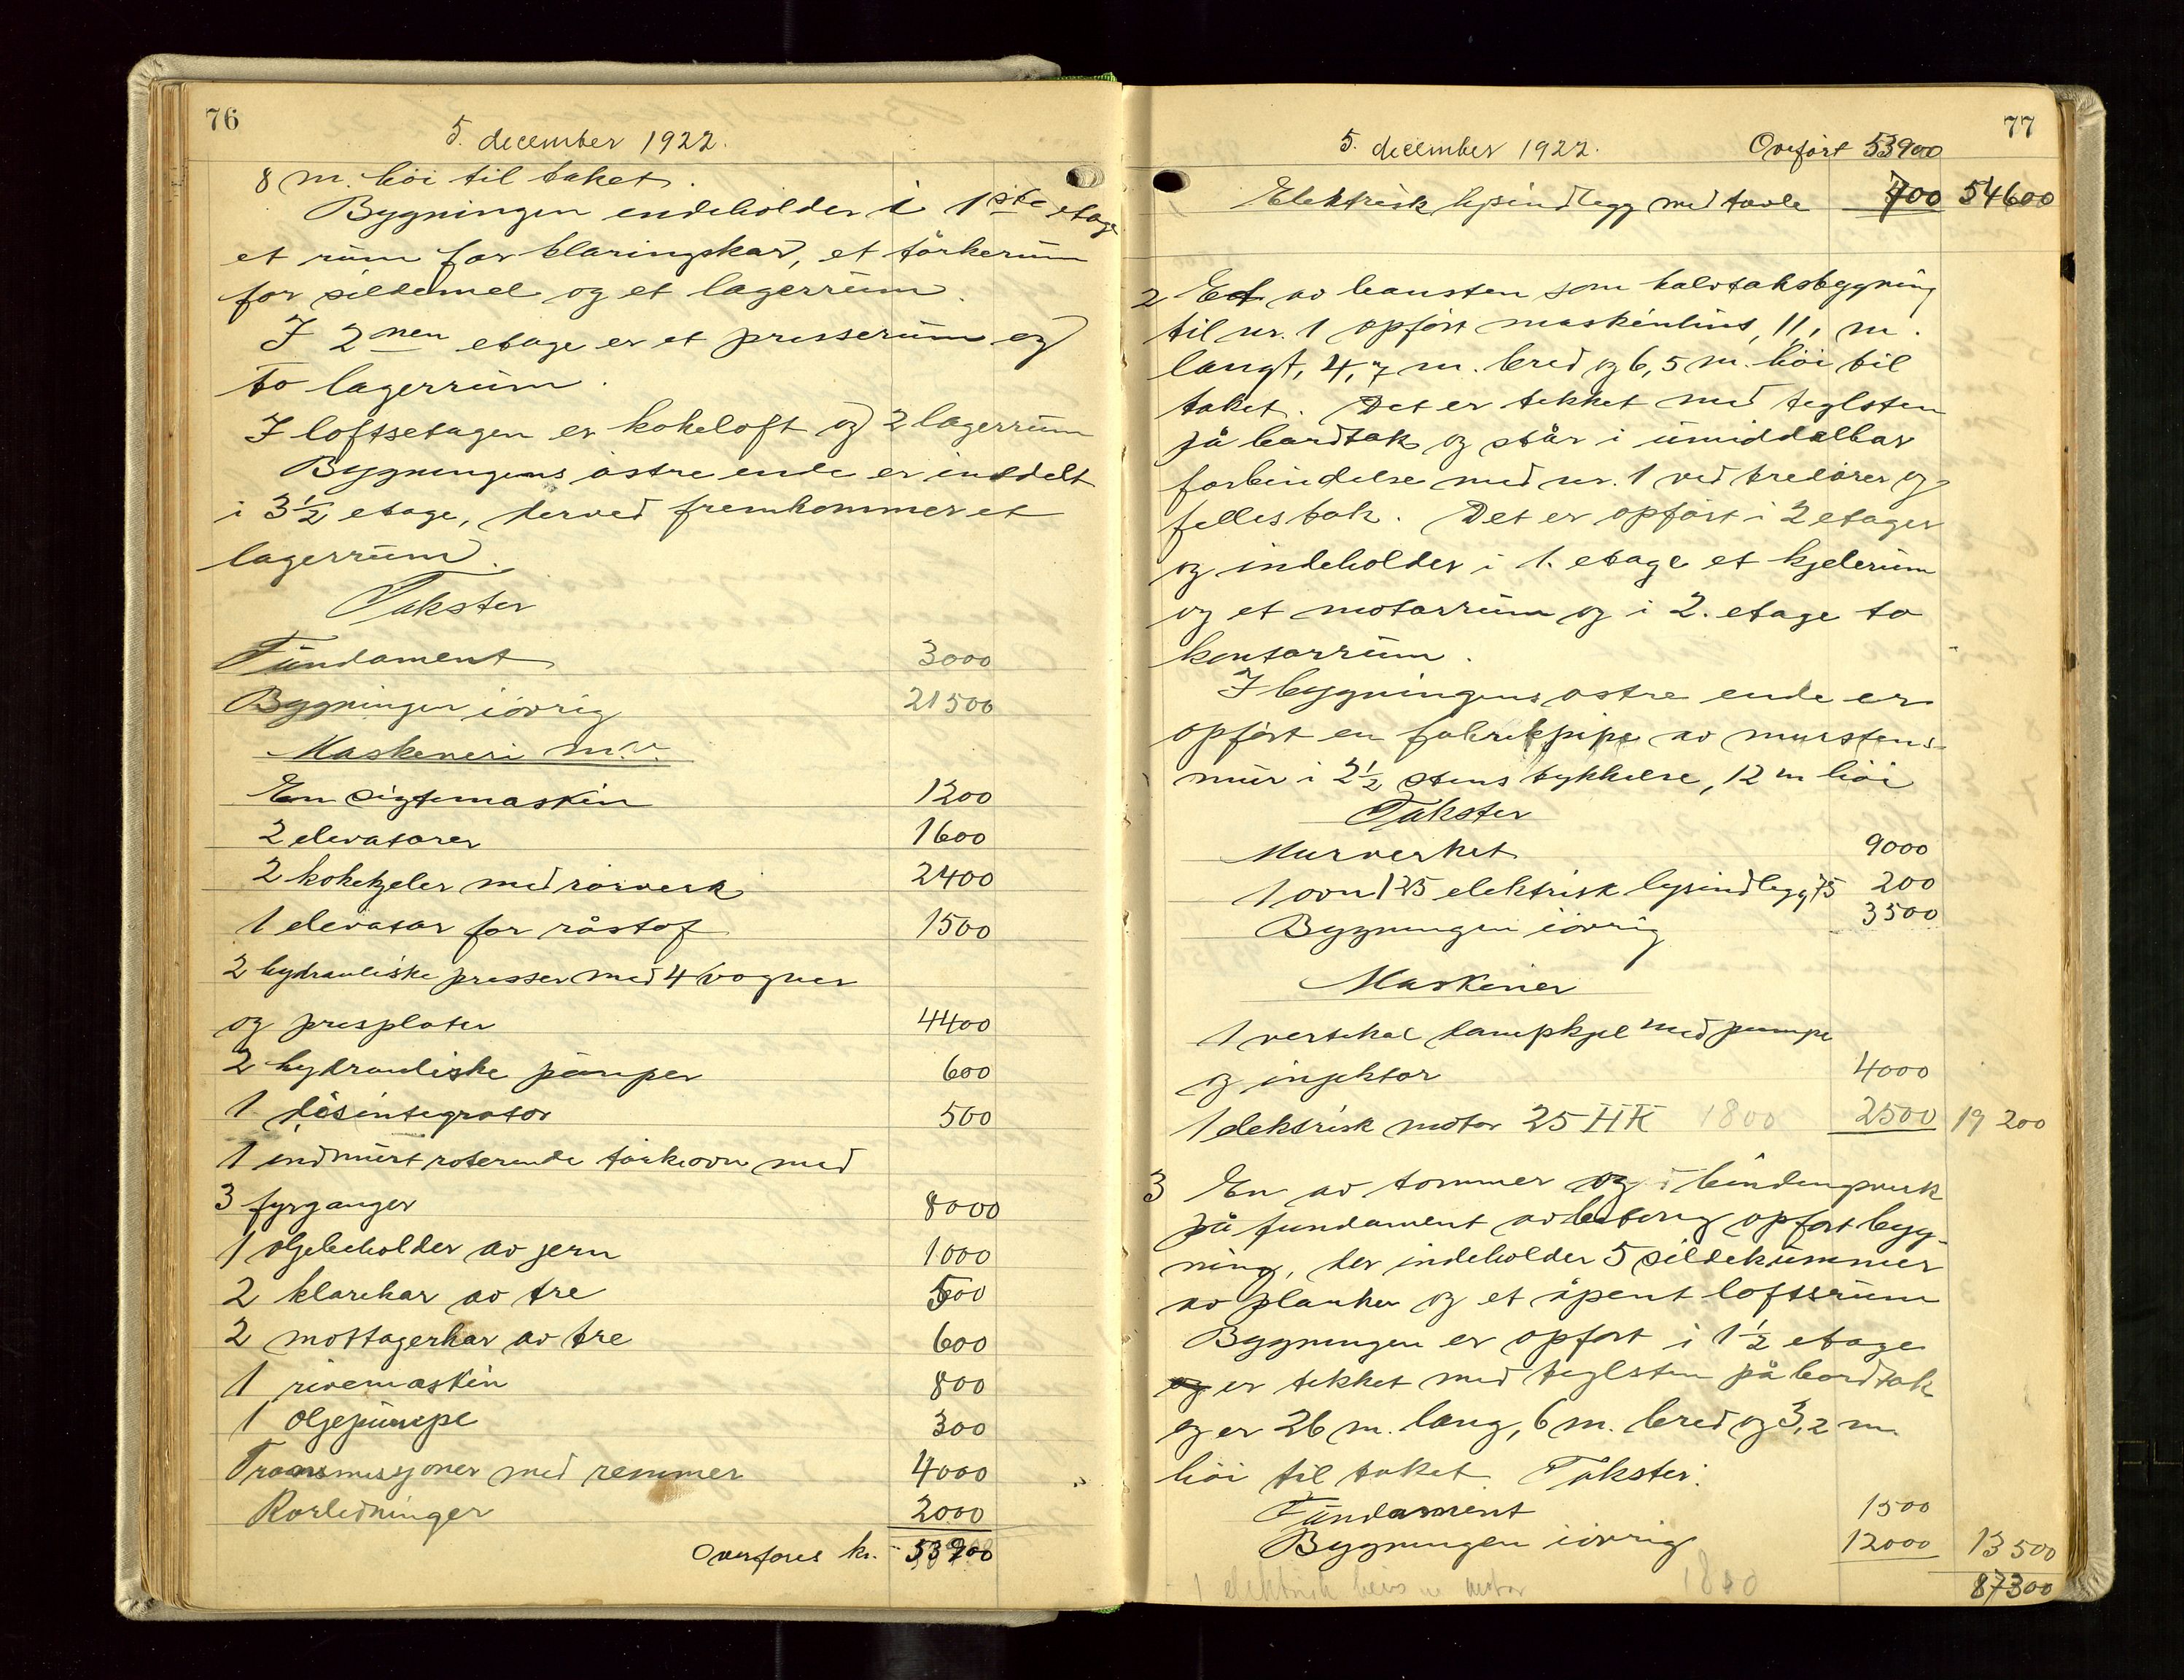 76
5. december 1922.
8 m. höi til taket.
Bygningen endeholder i 1ste etage
et rum for klaringskar, et törkerum
for sildemel og et lagerrum.
I 2nen etage er et presserum og
to lagerrum.
I loftsetagen er kokeloft og 2 lagerrum
Bygningens östre ende er inddelt
i 3½ etage, derved fremkommer et
lagerrum.
Takster
Fundament 3000
Bygningen iövrig 21500
Maskeneri m.v.
En sigtemaskin 1200
2 elevatorer 1600
2 kokekjeler med rörverk 2400
1 elevator for råstof 1500
2 hydrauliske presser med 4 vogner
og presplater 4400
2 hydrauliske pumper 600
1 disintegrator 500
1 indmurt roterende törkeovn med
3 fyrganger 8000
1 oljebeholder av jern 1000
2 klarekar av tre 500
2 mottagerkar av tre 600
1 rivemaskin 800
1 oljepumpe 300
Transmissjoner med remmer 4000
Rörledninger 2000
Overföres kr. 53900
77
5. december 1922. Overfört 53900
Elektrisk lysindlegg med tavle 700 54600
2 Et av bausten som halvtaksbygning
til nr. 1 opfört maskinhus, 11,1 m.
langt, 4,7 m. bred og 6,5 m. höi til
taket. Det er tekket med teglsten
på bordtak og står i umiddelbar
forbindelse med nr. 1 ved tredörer og
fellestak. Det er opfört i 2 etager
og indeholder i 1. etage et kjelerum
og et motorrum og i 2. etage to
kontorrum.
I bygningens östre ende er
opfört en fabrikpipe av murstens-
mur i 2½ stens tykkelse, 12 m höi
Takster
Murverket 9000
1 ovn 125 elektrisk lysindlegg 75 200
Bygningen iövrig 3500
Maskiner
1 vertikal dampkjel med pumpe
og injektor 4000
1 elektrisk motor 25 HK 1800 2500 19 200
3 En av tömmer og i bindingsverk
på fundament av betong opfört byg-
ning, der indeholder 5 sildekummer
av planker og et åpent loftsrum
Bygningen er opfört i 1½ etage
og er tekket med teglsten på bordtak
og er 26 m. lang, 6 m. bred og 3,2 m
höi til taket. Takster:
Fundament 1500
Bygningen iövrig 12000 13500
1 elektrisk heis m motor 1800
87300